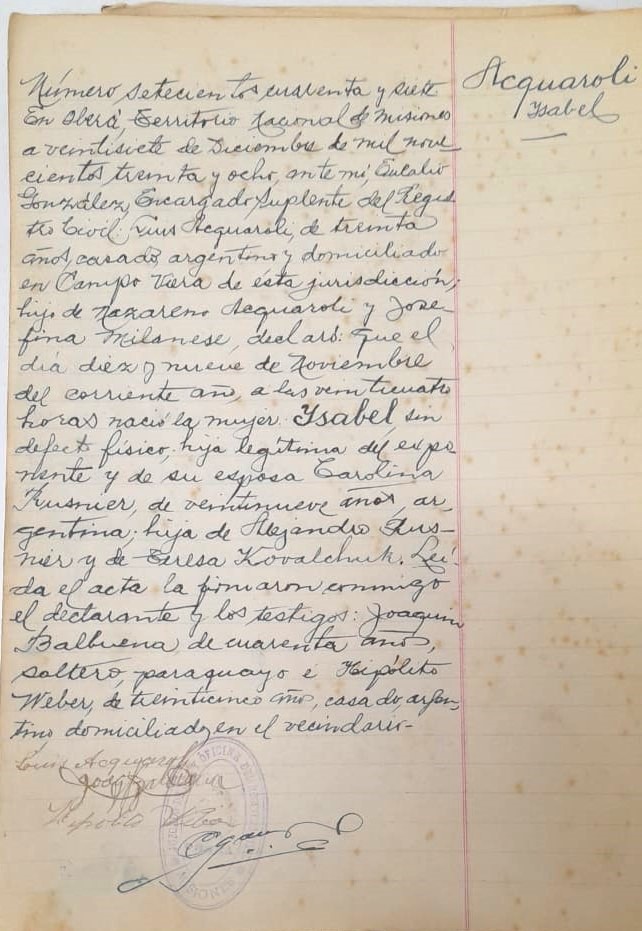 Acquaroli
Isabel
Número setecientos cuarenta y siete
En Oberá, Territorio Nacional de Misiones
a veintisiete de Diciembre de mil nove-
cientos treinta y ocho, ante mi, Eulalio
González, Encargado Suplente del Regis-
tro Civil: Luis Acquaroli, de treinta
años, casado, argentino y domiciliado
en Campo Viera de ésta jurisdicción;
hijo de Nazareno Acquaroli y Jose-
fina Milanese, declaró: Que el
día diez y nueve de Noviembre
del corriente año, a las veinticuatro
horas nació la mujer Ysabel, sin
defecto físico, hija legítima del expo-
nente y de su esposa Carolina
Kusnier, de veintinueve años, ar-
gentina; hija de Alejandro Kus-
nier y de Teresa Kovalchuk. Leí-
da el acta la firmaron conmigo
el declarante y los testigos: Joaquin
Balbuena, de cuarenta años,
soltero, paraguayo e Hipólito
Weber, de treinticinco años, casado, argen-
tino, domiciliados en el vecindario-
Louis Acquaroli
OFICINA DEL REGISTRO